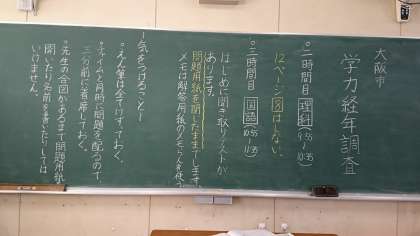 大阪市
学力経年調査
○二時間目 理科 (9:55〜10:35)
12ページ 図はしない。
○三時間目 国語 (10:55〜11:35)
はじめに聞き取りテストが
あります。
問題用紙を閉じたままでします。
メモは解答用紙のメモらんを使う
ー気をつけることー
○えん筆は全てけずっておく。
○チャイムと同時に問題を配るので
三分前に着席しておく。
○先生の合図があるまで問題用紙
開いたり名前を書いたりしては
いけません。